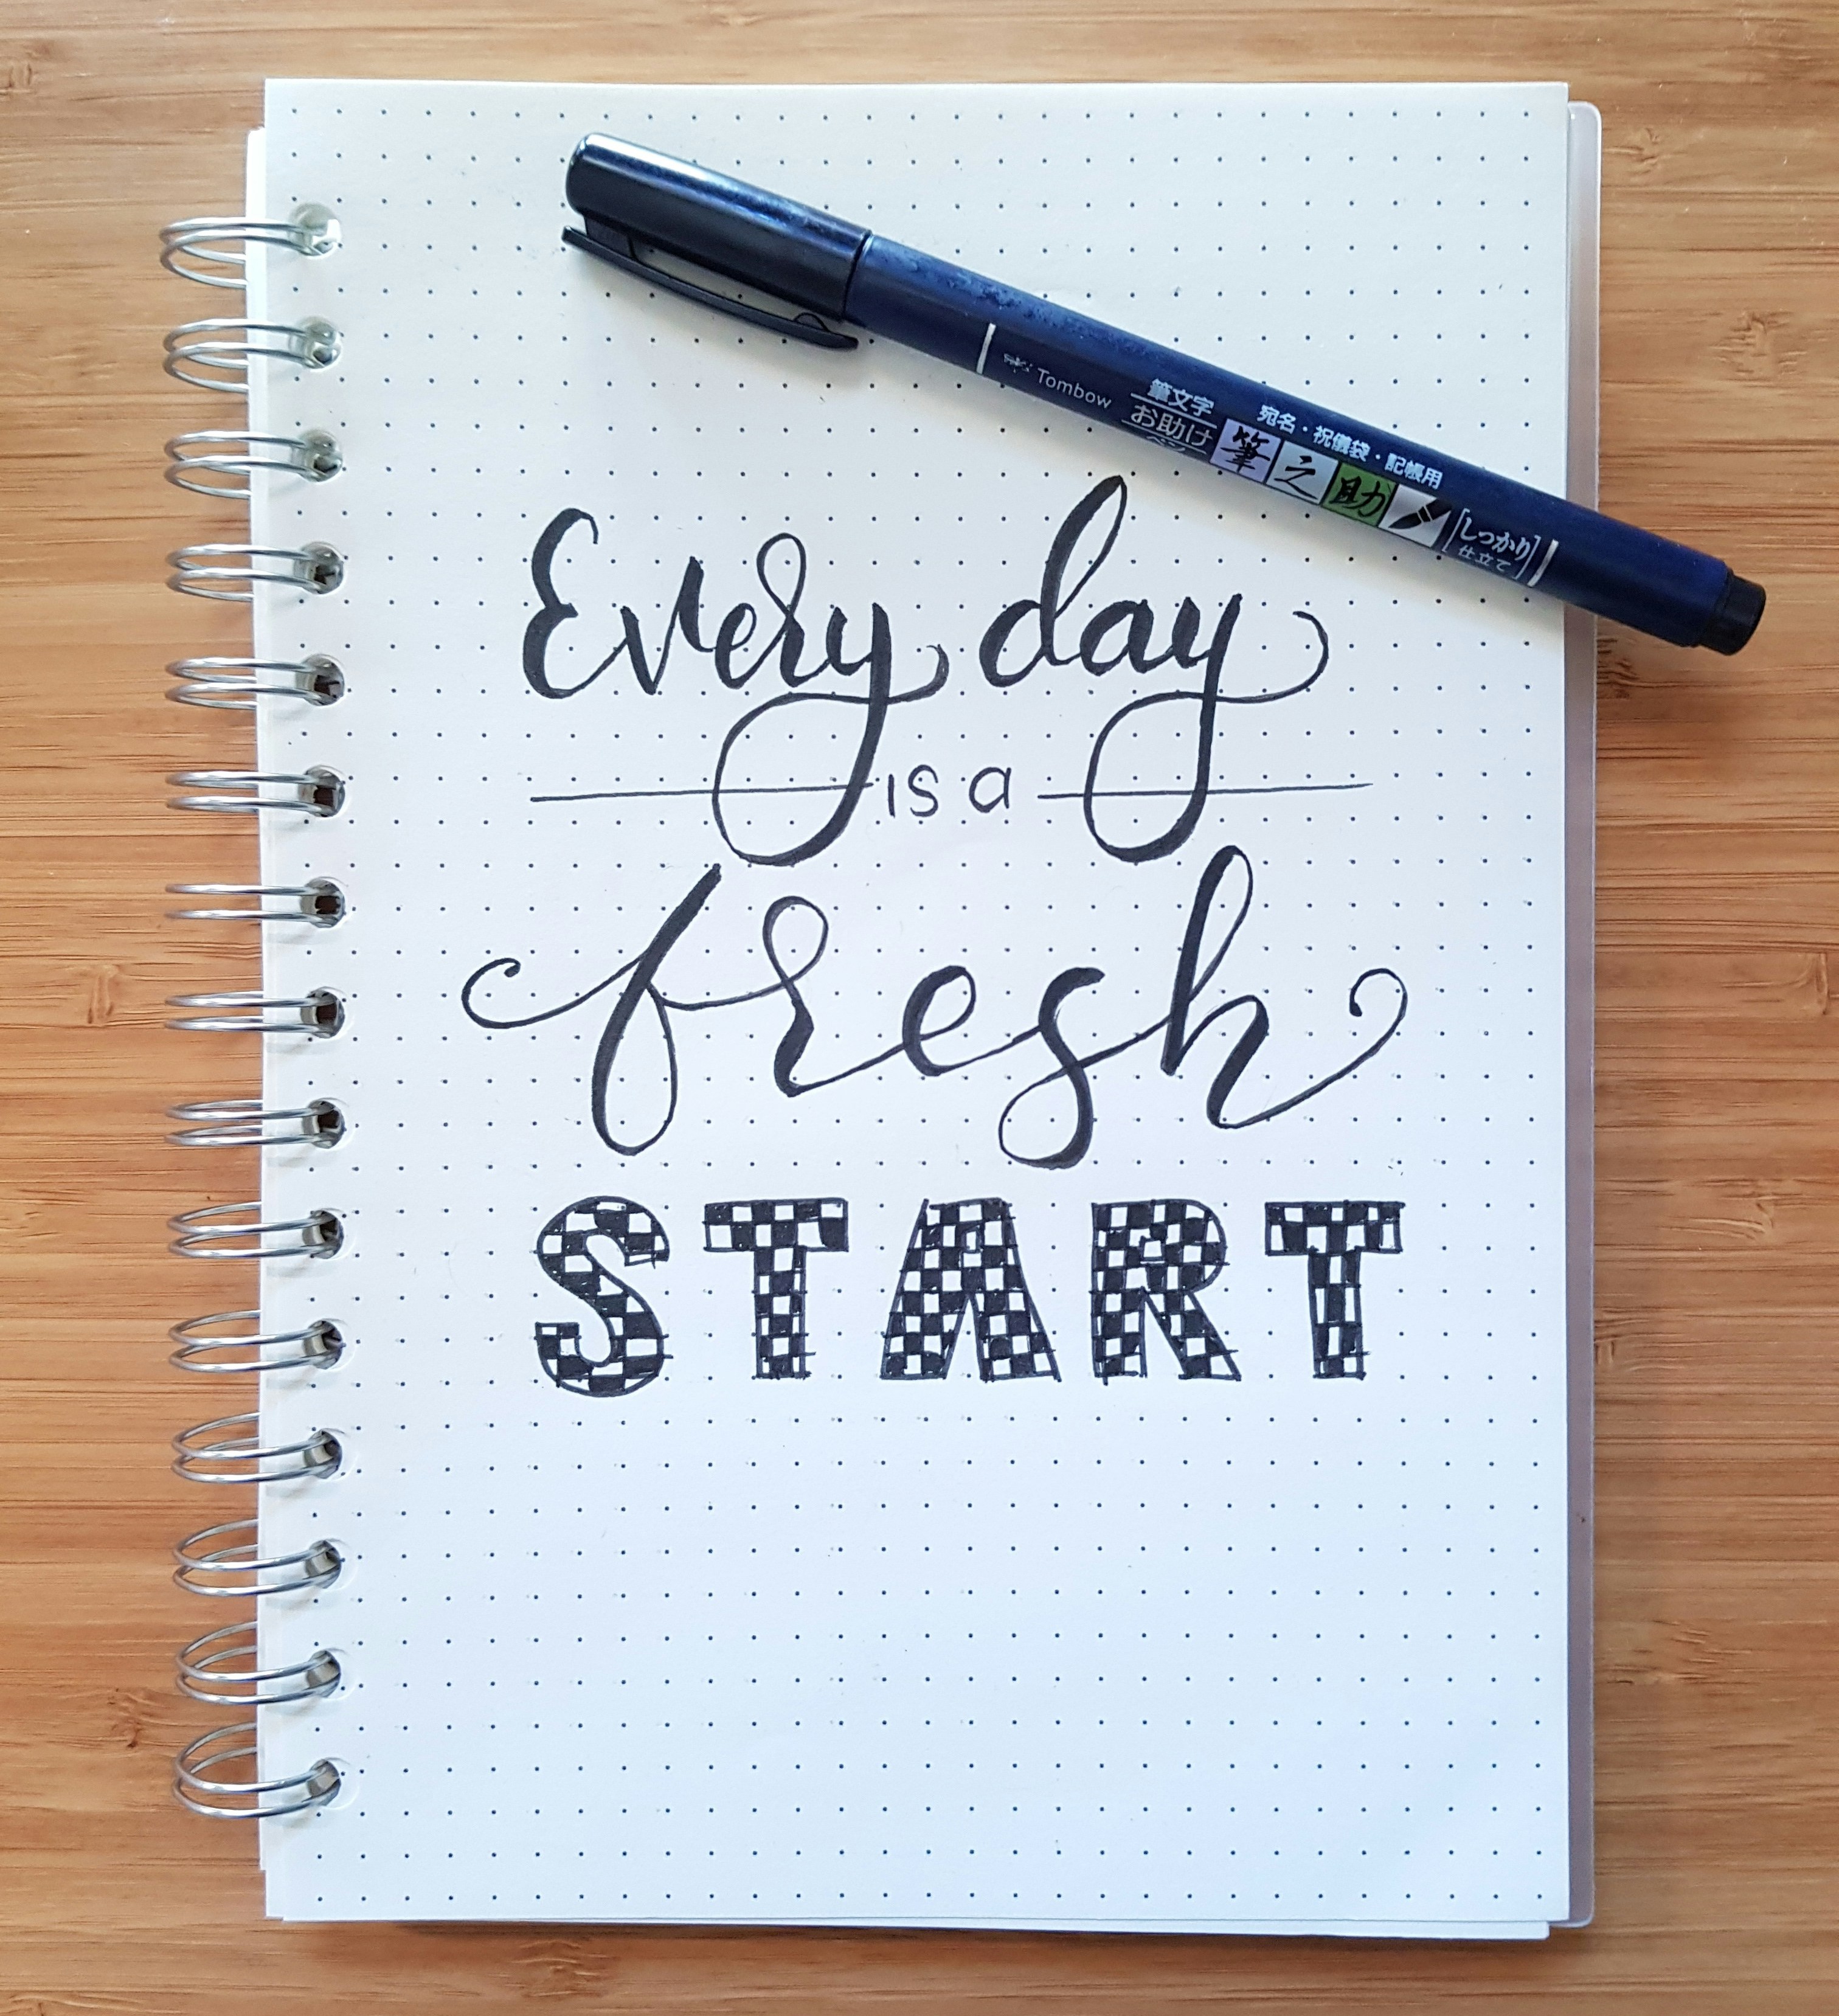 Tombow
筆文字
お助け
ペン
宛名・祝儀袋・記帳用
筆之助
しっかり
仕立て
Every day
is a
fresh
START